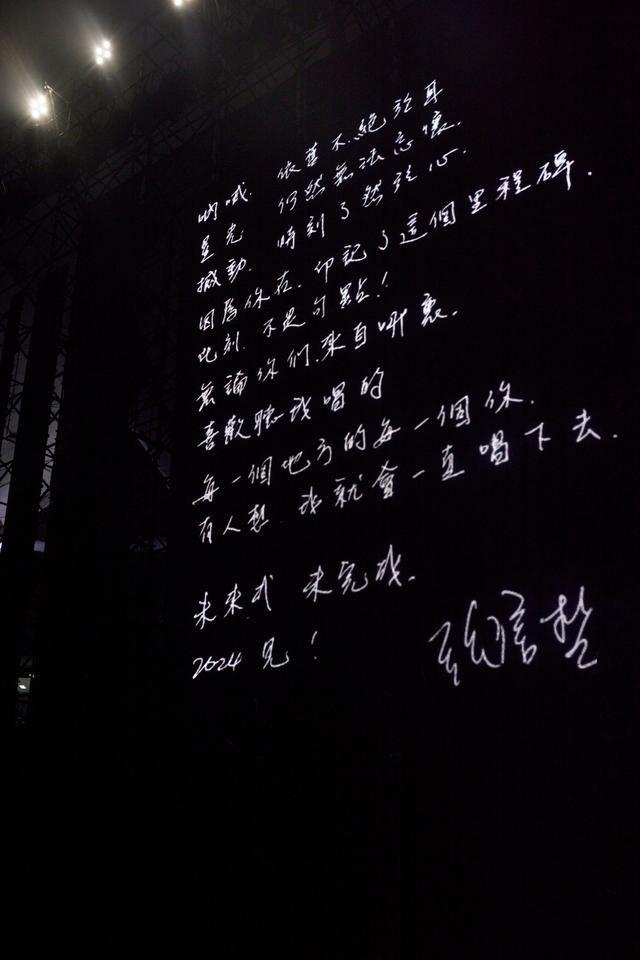 吶喊. 依舊不絕於耳
星光 仍然無法忘懷.
撼動. 時刻了然於心.
因為你在. 印記了這個里程碑.
此刻. 不是句點!
無論你們.來自哪裏.
喜歡聽我唱的
每一個地方的每一個你.
有人想. 我就會一直唱下去.
未來式 未完成.
2024 見!
張信哲